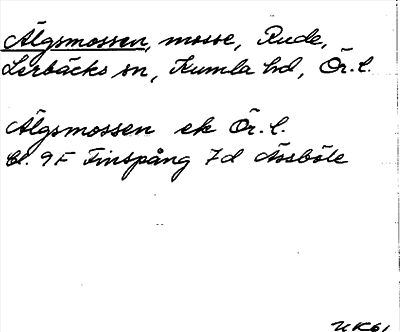 Älgsmossen, mosse, Rude,
Lerbäcks sn, Kumla hd, Ör. l.
Älgsmossen ek Ör. l.
Bl. 9F Finspång 7d Åssböle
UK61